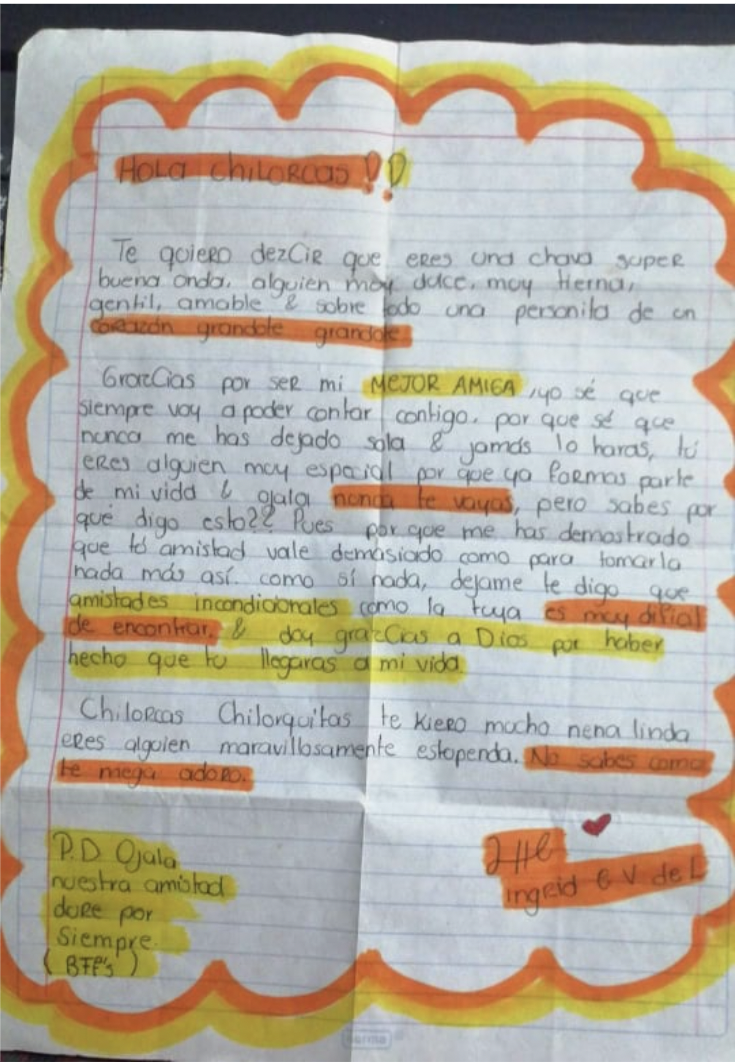 HOLA CHILORCAS !!
Te quiero dezCir que eres una chava super
buena onda, alguien muy dulce, muy tierna,
gentil, amable & sobre todo una personita de un
corazón grandote grandote.
GrazCias por ser mi MEJOR AMIGA, yo sé que
siempre voy a poder contar contigo, por que sé que
nunca me has dejado sola & jamás lo haras, tú
eres alguien muy especial por que ya formas parte
de mi vida & ojala nunca te vayas, pero sabes por
qué digo esto?? Pues por que me has demostrado
que tú amistad vale demasiado como para tomarla
nada más así como sí nada, dejame te digo que
amistades incondicionales como la tuya es muy dificil
de encontrar, & doy grazCias a Dios por haber
hecho que tu llegaras a mi vida
Chilorcas Chilorquitas te kiero mucho nena linda
eres alguien maravillosamente estupenda. No sabes como
te mega adoro.
P.D Ojala
nuestra amistad
dure por
Siempre
(BFF's)
Ingrid G V de L